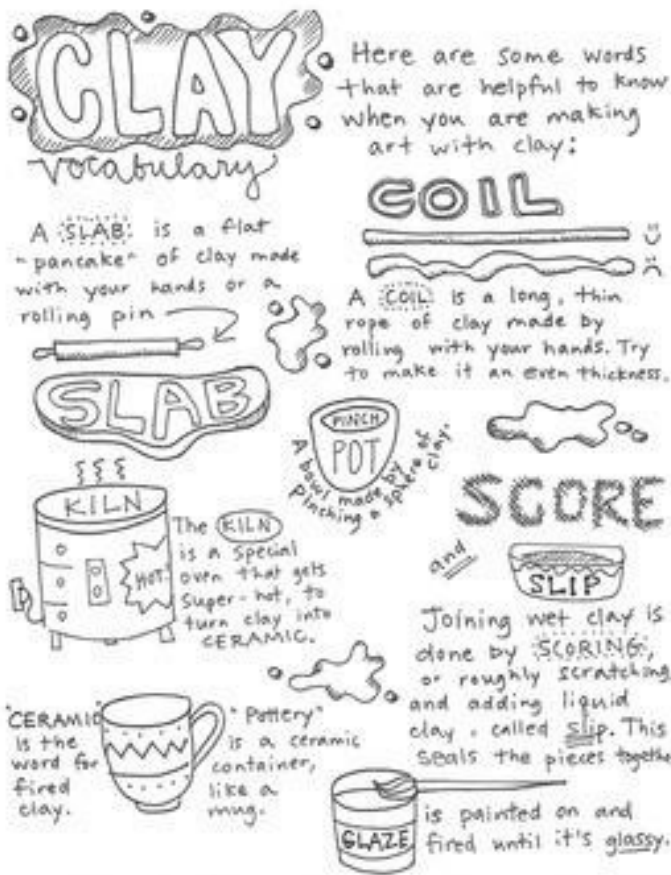 CLAY
vocabulary
Here are some words
that are helpful to know
when you are making
art with clay:
A SLAB is a flat
"pancake" of clay made
with your hands or a
rolling pin
SLAB
COIL
A COIL is a long, thin
rope of clay made by
rolling with your hands. Try
to make it an even thickness.
PINCH
POT
A bowl made by
pinching a sphere of clay.
KILN
HOT
The KILN
is a special
oven that gets
super-hot, to
turn clay into
CERAMIC.
SCORE
and
SLIP
Joining wet clay is
done by SCORING,
or roughly scratching
and adding liquid
clay, called slip. This
seals the pieces together
"CERAMIC"
is the
word for
fired
clay.
"Pottery"
is a ceramic
container,
like a
mug.
GLAZE
is painted on and
fired until it's glassy.